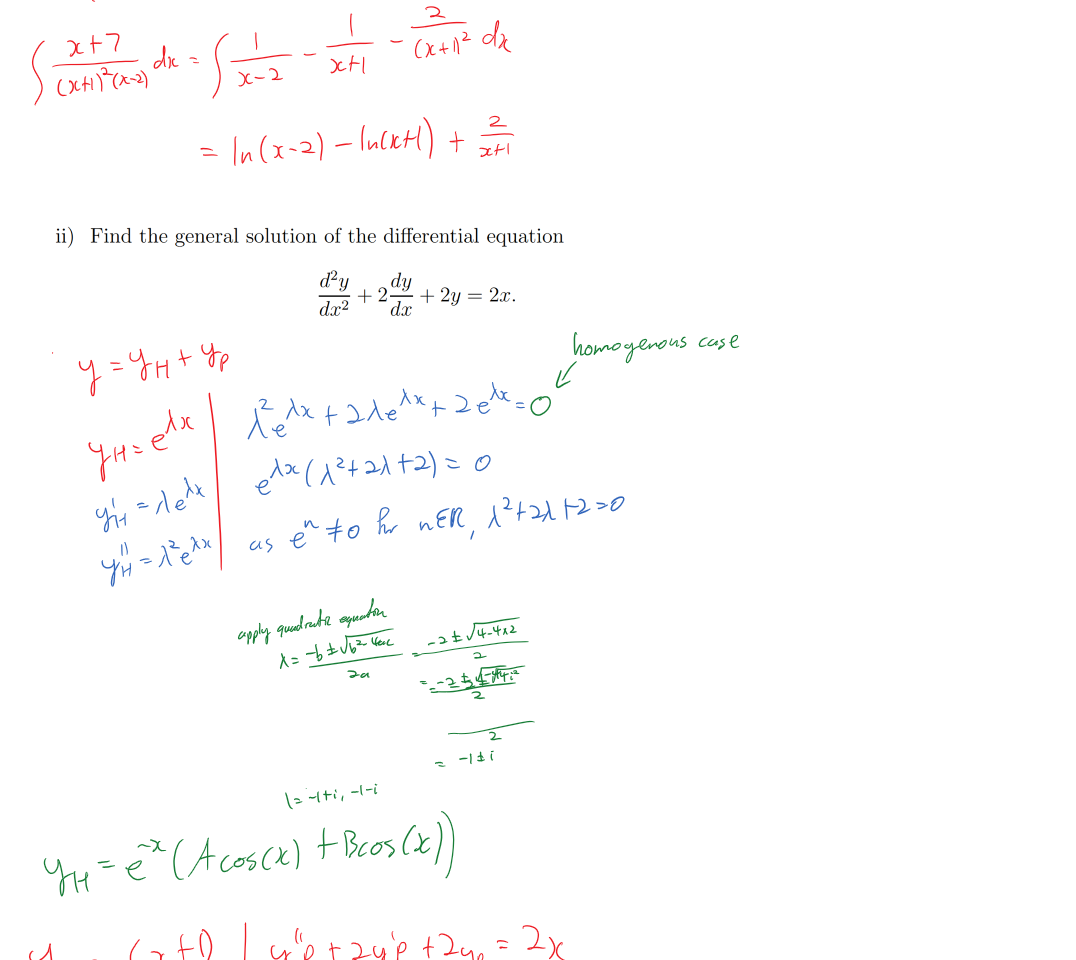 ∫ (x+7)/((x+1)²(x-2)) dx = ∫ 1/(x-2) - 1/(x+1) - 2/(x+1)² dx
= ln(x-2) - ln(x+1) + 2/(x+1)
ii) Find the general solution of the differential equation
d²y/dx² + 2 dy/dx + 2y = 2x.
homogenous case
y = y_H + y_p
y_H = e^{λx}
λ²e^{λx} + 2λe^{λx} + 2e^{λx} = 0
e^{λx}(λ²+2λ+2) = 0
y'_H = λe^{λx}
as eⁿ ≠ 0 for n∈ℝ, λ²+2λ+2=0
y''_H = λ²e^{λx}
apply quadratic equation
λ = (-b ± √(b²-4ac))/2a = (-2 ± √(4-4×2))/2
2
= -1 ± i
λ = -1+i, -1-i
y_H = e^{-x}(A cos(x) + B cos(x))
y''p + 2y'p + 2y_p = 2x